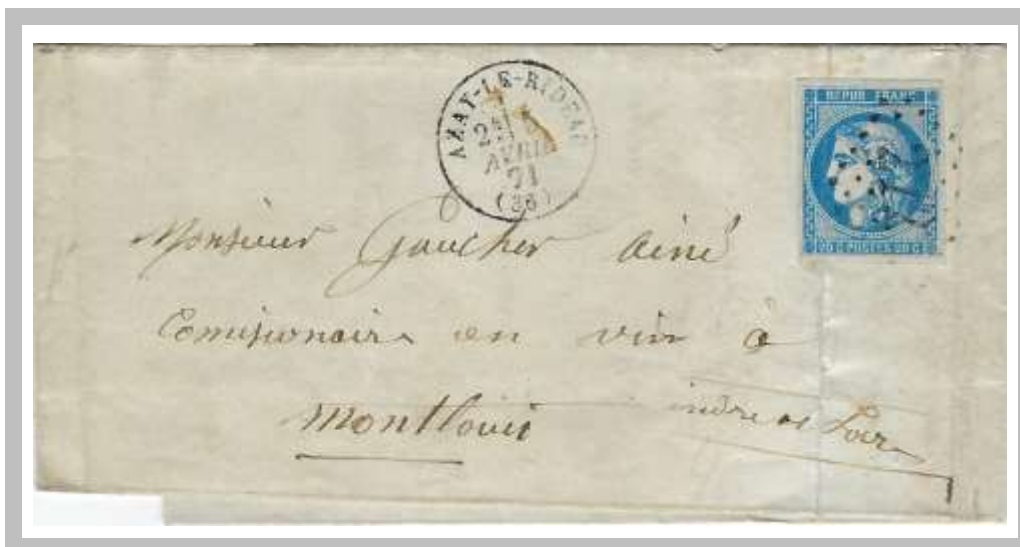 AZAY-LE-RIDEAU
AVRIL
71
(36)
REPUB FRANC
20 C POSTES 20 C
Monsieur Gaucher ainé
Comisionaire en vin à
Montlouis indre et Loire